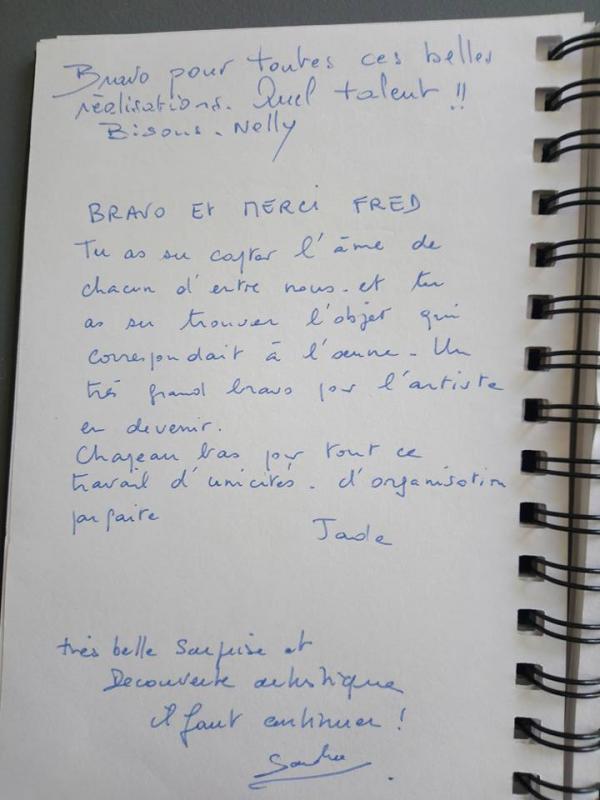 Bravo pour toutes ces belles
réalisations. Quel talent !!
Bisous. Nelly
BRAVO Et MERCi FRED
Tu as su capter l'âme de
chacun d'entre nous. et tu
as su trouver l'objet qui
correspondait à l'œuvre. Un
très grand bravo pour l'artiste
en devenir.
Chapeau bas pour tout ce
travail d'unicités. d'organisation
parfaite
Jade
très belle Surprise et
Decouverte artistique
il faut continuer !
Sandra